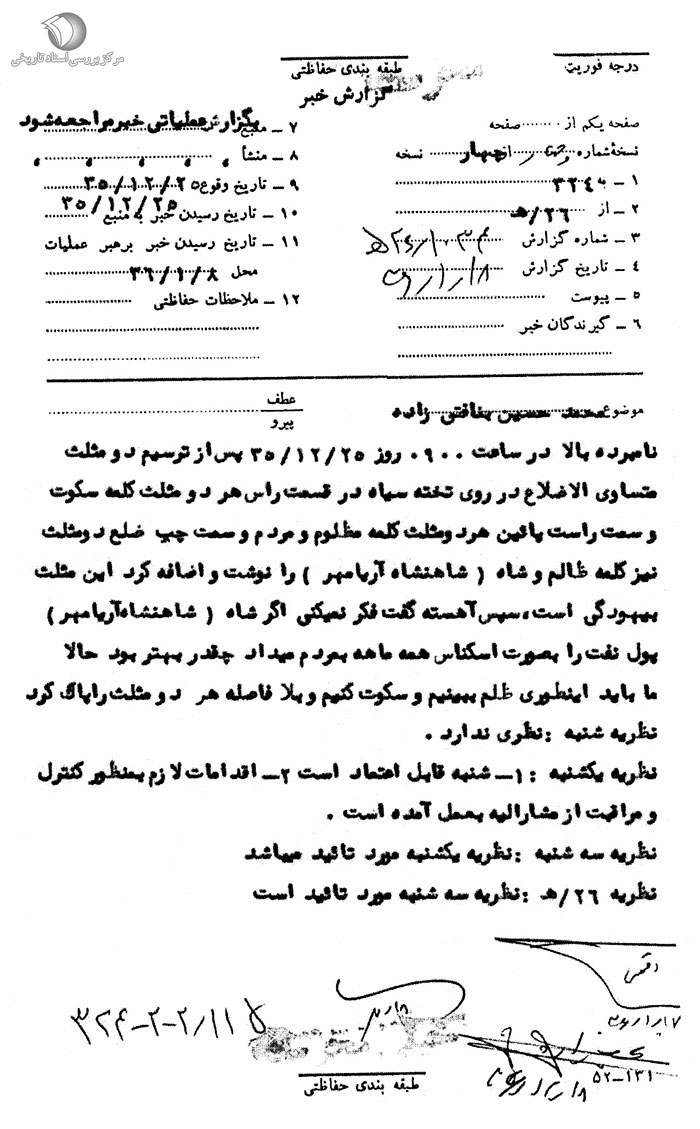 مرکز بررسی اسناد تاریخی
درجه فوریت
طبقه بندی حفاظتی
گزارش خبر
صفحه یکم از ........ صفحه
نسخه شماره ........ از چهار نسخه
۱ ـ به ۳۲۴
۲ ـ از ۲۶/ه
۳ ـ شماره گزارش
۴ ـ تاریخ گزارش
۵ ـ پیوست
۶ ـ گیرندگان خبر
۷ ـ منبع بگزارش عملیاتی خبر مراجعه شود
۸ ـ منشأ
۹ ـ تاریخ وقوع ۳۵/۱۲/۲۵
۱۰ ـ تاریخ رسیدن خبر به منبع ۳۵/۱۲/۲۵
۱۱ ـ تاریخ رسیدن خبر برهبر عملیات
محل ۳۶/۱/۸
۱۲ ـ ملاحظات حفاظتی
موضوع محمد حسین بنافتی زاده
عطف
پیرو
نامبرده بالا در ساعت ۰۹۰۰ روز ۳۵/۱۲/۲۵ پس از ترسیم دو مثلث
متساوی الاضلاع در روی تخته سیاه در قسمت راس هر دو مثلث کلمه سکوت
و سمت راست پائین هر دو مثلث کلمه مظلوم و مردم و سمت چپ ضلع دو مثلث
نیز کلمه ظالم و شاه ( شاهنشاه آریامهر ) را نوشت و اضافه کرد این مثلث
بیهودگی است، سپس آهسته گفت فکر نمیکنی اگر شاه ( شاهنشاه آریامهر )
پول نفت را بصورت اسکناس همه ماهه بمردم میداد چقدر بهتر بود حالا
ما باید اینطوری ظلم ببینیم و سکوت کنیم و بلا فاصله هر دو مثلث را پاک کرد
نظریه شنبه : نظری ندارد .
نظریه یکشنبه : ۱ـ شنبه قابل اعتماد است ۲ـ اقدامات لازم بمنظور کنترل
و مراقبت از مشارالیه بعمل آمده است .
نظریه سه شنبه : نظریه یکشنبه مورد تائید میباشد
نظریه ۲۶/ه : نظریه سه شنبه مورد تائید است
۳۲۴-۲-۲/۱۱۵
۵۲-۱۳۱
طبقه بندی حفاظتی